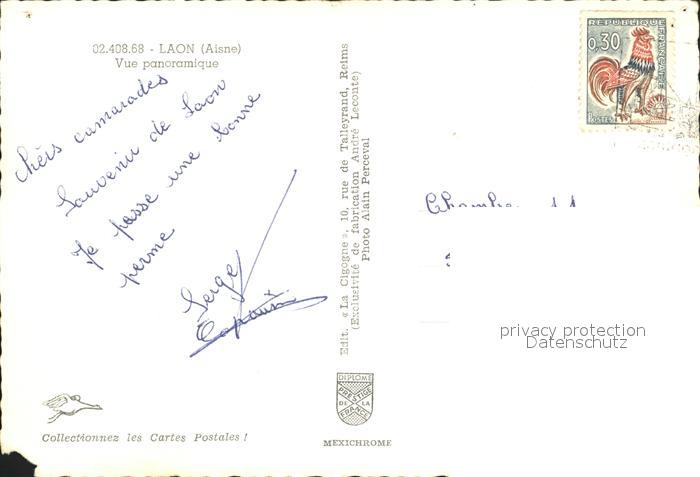 02.408.68 - LAON (Aisne)
Vue panoramique
Chérs camarades
Souvenir de Laon
Je passe une bonne
perme
Serge
Collectionnez les Cartes Postales !
Edit. « La Cigogne », 10, rue de Talleyrand, Reims
(Exclusivité de fabrication André Leconte)
Photo Alain Perceval
DIPLOME
PRESTIGE
DE LA
FRANCE
MEXICHROME
REPUBLIQUE
FRANCAISE
0,30
POSTES
privacy protection
Datenschutz